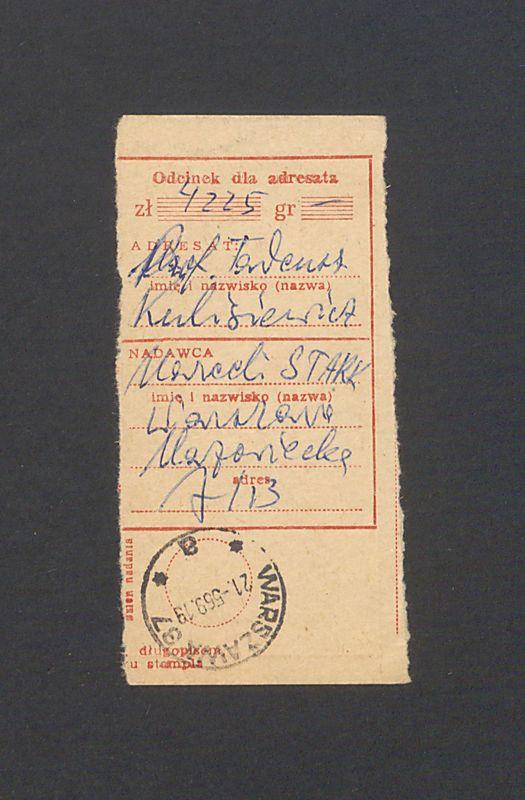 Odcinek dla adresata
zł 4225 gr —
ADRESAT:
Prof. Tadeusz
imię i nazwisko (nazwa)
Kulisiewicz
NADAWCA
Marceli STARK
imię i nazwisko (nazwa)
Warszawa
Mazowiecka
adres
7/13
B
WARSZAWA 97
21.-569.19
długopisem
u stempla